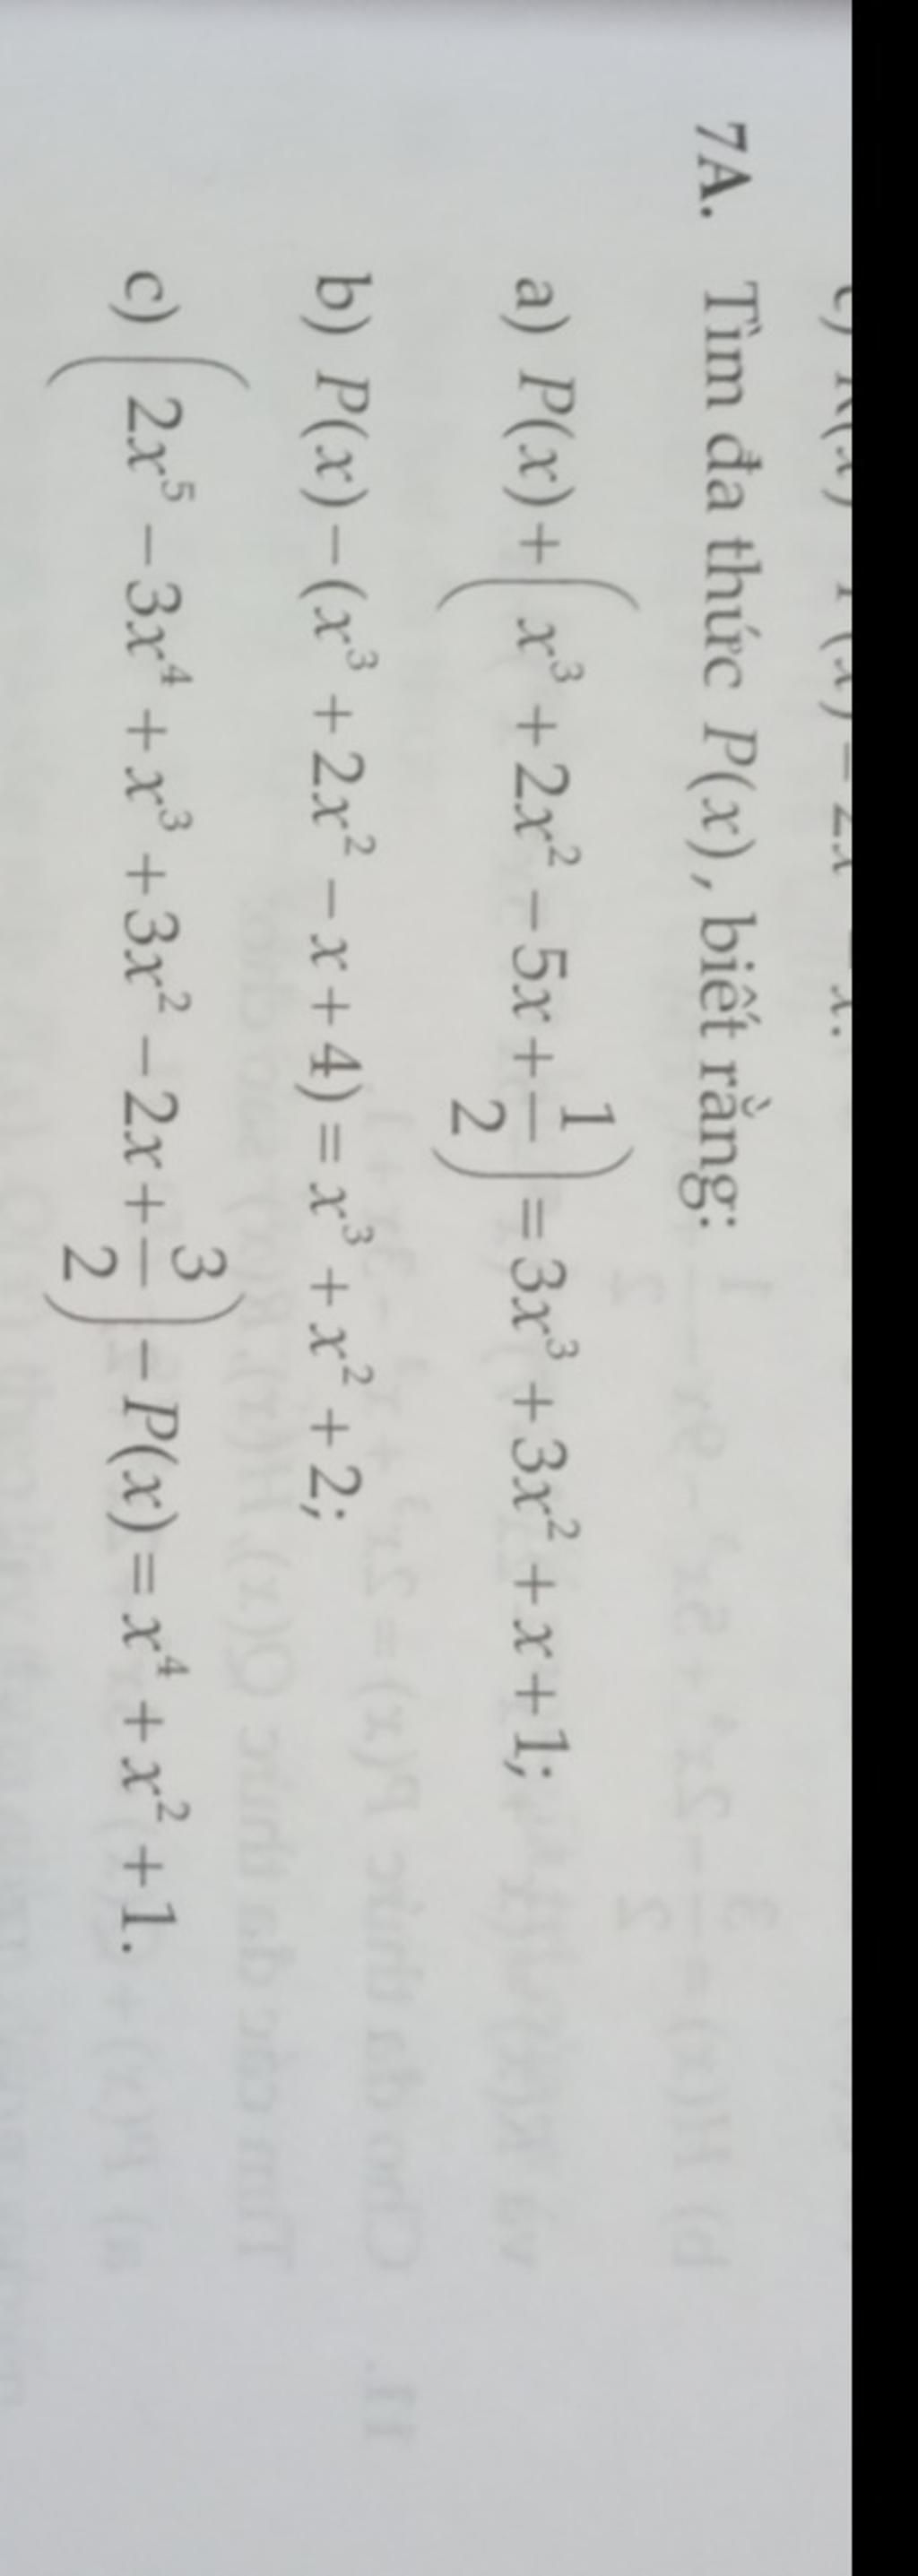 7A. Tìm đa thức P(x), biết rằng:
a) P(x) + (x³ + 2x² − 5x + 1/2) = 3x³ + 3x² + x + 1;
b) P(x) − (x³ + 2x² − x + 4) = x³ + x² + 2;
c) (2x⁵ − 3x⁴ + x³ + 3x² − 2x + 3/2) − P(x) = x⁴ + x² + 1.